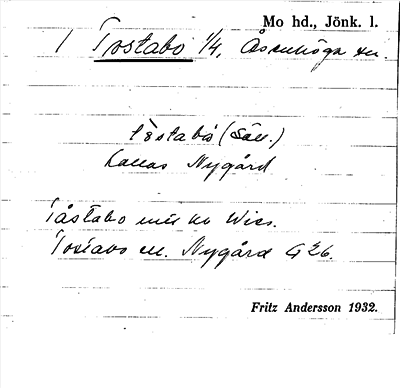 Mo hd., Jönk. l.
1 Tostabo 1/4, Åsenhöga sn.
tåstabó (Säll.)
kallas Nygård
Tåstabo Wies.
Tostabo el. Nygård G Eb.
Fritz Andersson 1932.